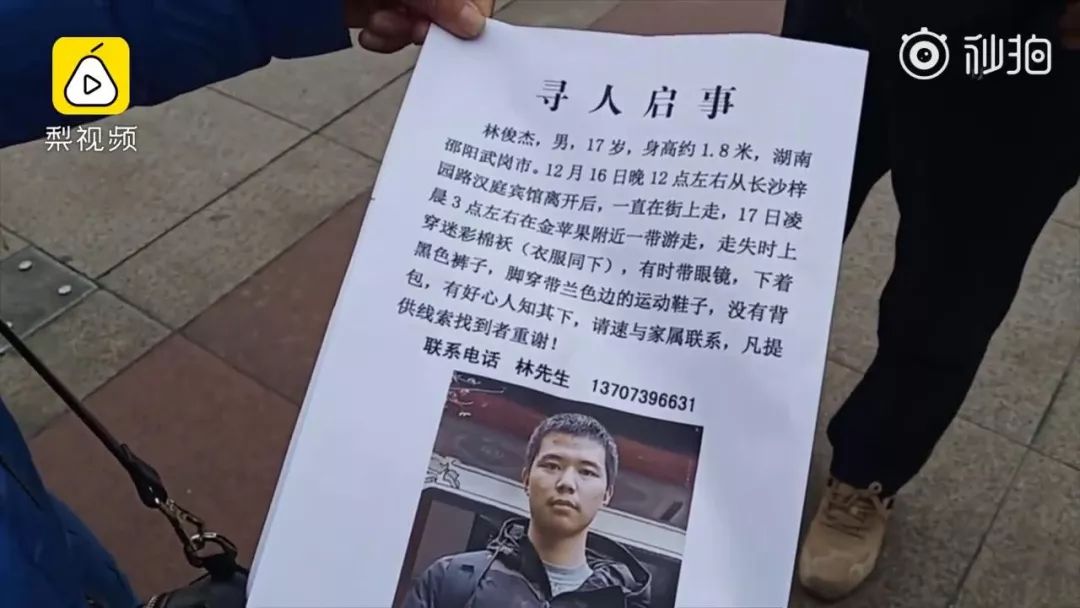 梨视频
秒拍
寻人启事
林俊杰，男，17岁，身高约1.8米，湖南
邵阳武岗市。12月16日晚12点左右从长沙梓
园路汉庭宾馆离开后，一直在街上走，17日凌
晨3点左右在金苹果附近一带游走，走失时上
穿迷彩棉袄（衣服同下），有时带眼镜，下着
黑色裤子，脚穿带兰色边的运动鞋子，没有背
包，有好心人知其下，请速与家属联系，凡提
供线索找到者重谢！
联系电话 林先生 13707396631